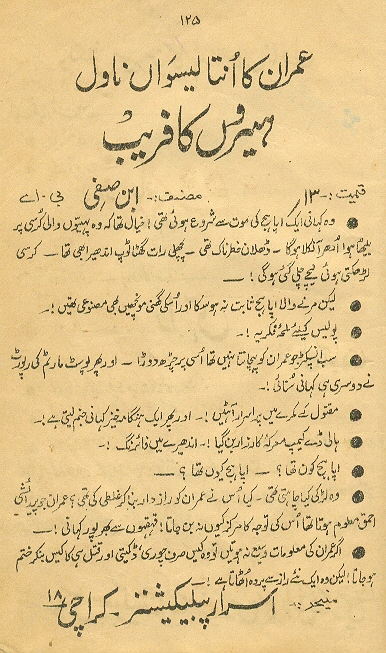 ۱۲۵
عمران کا اُنتالیسواں ناول
ہیروں کا فریب
قیمت:- ۱۳ مصنف:- ابن صفی بی-اے
● وہ کہانی ایک اپاہج کی موت سے شروع ہوئی تھی! خیال تھا کہ وہ پہیوں والی کرسی پر
بیٹھا ہوا اُدھر آ نکلا ہوگا - ڈھلان خطرناک تھی - پچھلی رات گھٹا ٹوپ اندھیرا بھی تھا - کرسی
لڑھکتی ہوئی نیچے چلی گئی ہوگی! —
● لیکن مرنے والا اپاہج ثابت نہ ہوسکا اور اُسکی گھنی مونچھیں بھی مصنوعی تھیں!-
● پولیس کیلئے لمحۂ فکریہ!-
● سب انسپکٹر جو عمران کو پہچانتا نہیں تھا اُسی پر چڑھ دوڑا - اور پھر پوسٹ مارٹم کی رپورٹ
نے دوسری ہی کہانی سُنائی!-
● مقتول کے کمرے میں پراسرار آہٹیں!- اور پھر ایک ہنگامہ خیز کہانی جنم لیتی ہے!-
● ہالی ڈے کیمپ معرکۂ کارزار بن گیا!- اندھیرے میں فائرنگ!-
● اپاہج کون تھا؟ — اپاہج کیوں تھا؟ —
● وہ لڑکی کیا چاہتی تھی - کیا اُس نے عمران کو رازدار بنا کر غلطی کی تھی؟ عمران جو پیدائشی
احمق معلوم ہوتا تھا اُس کی توجہ کا مرکز کیوں نہ بن جاتا! قہقہوں سے بھرپور کہانی!—
● اگر عمران کی معلومات وسیع نہ ہوتیں تو وہ کیس صرف چوری، ڈکیتی اور قتل ہی کا کیس بنکر ختم
ہو جاتا! لیکن وہ ایک نئے راز سے پردہ اُٹھاتا ہے!-
منیجر:- اسرار پبلیکیشنز - کراچی ۱۸